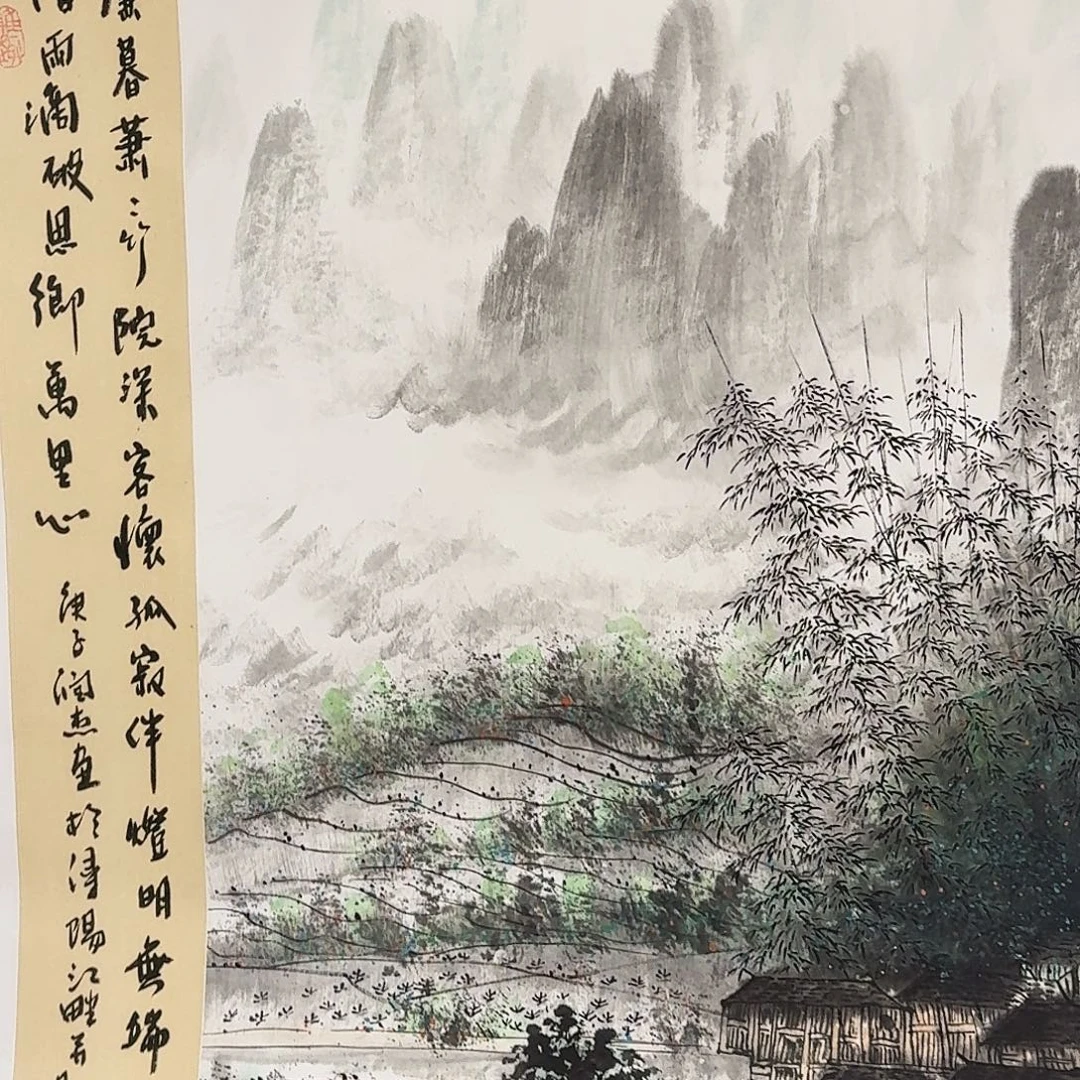 暮蕭〻竹院深客懷孤寂伴燈明無端
雨滴破思鄉萬里心 庚子潤杰畫於潯陽江畔并